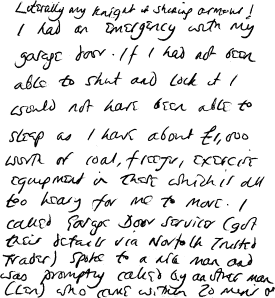 Literally my knight & shining armour!
I had an emergency with my
garage door. If I had not been
able to shut and lock it I
would not have been able to
sleep as I have about £1,000
worth of coal, freezer, exercise
equipment in there which is all
too heavy for me to move. I
called Garage Door Services (got
their details via Norfolk Trusted
Trader) spoke to a nice man and
was promptly called by another man
(Len) who came within 20 mins or